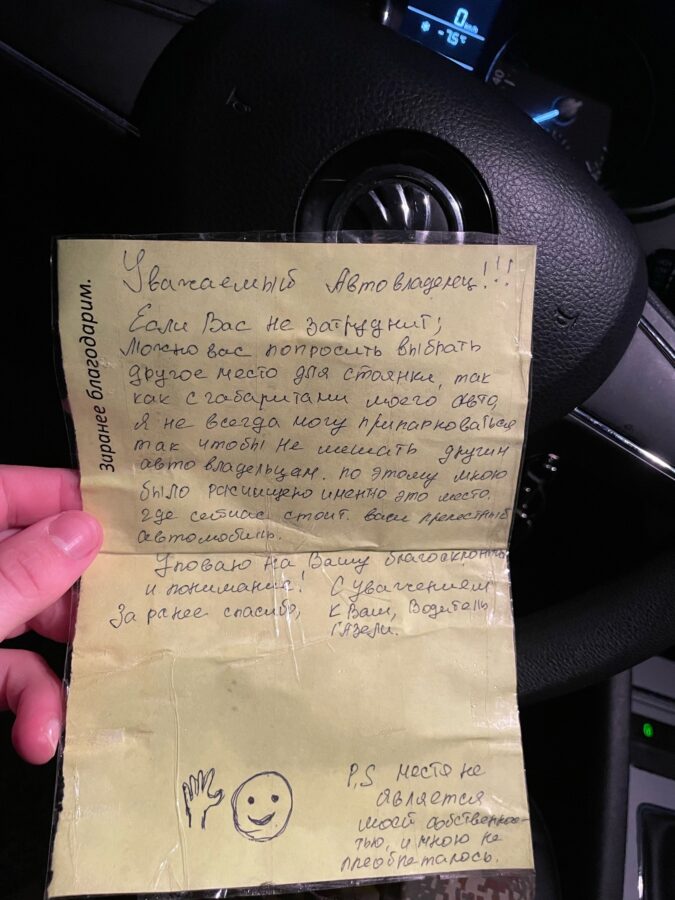 0 km/h
-7.5°
40
Заранее благодарим.
Уважаемый Автовладелец!!!
Если Вас не затруднит;
можно вас попросить выбрать
другое место для стоянки, так
как с габаритами моего авто,
я не всегда могу припарковаться
так чтобы не мешать другим
авто владельцам. по этому мною
было расчищено именно это место.
где сейчас стоит ваш прелестный
автомобиль.
Уповаю на Вашу благосклонность
и понимание! С уважением
За ранее спасибо, к Вам, Водитель
Газели.
P,S место не
является
моей собственнос-
тью, и мною не
преобреталось.